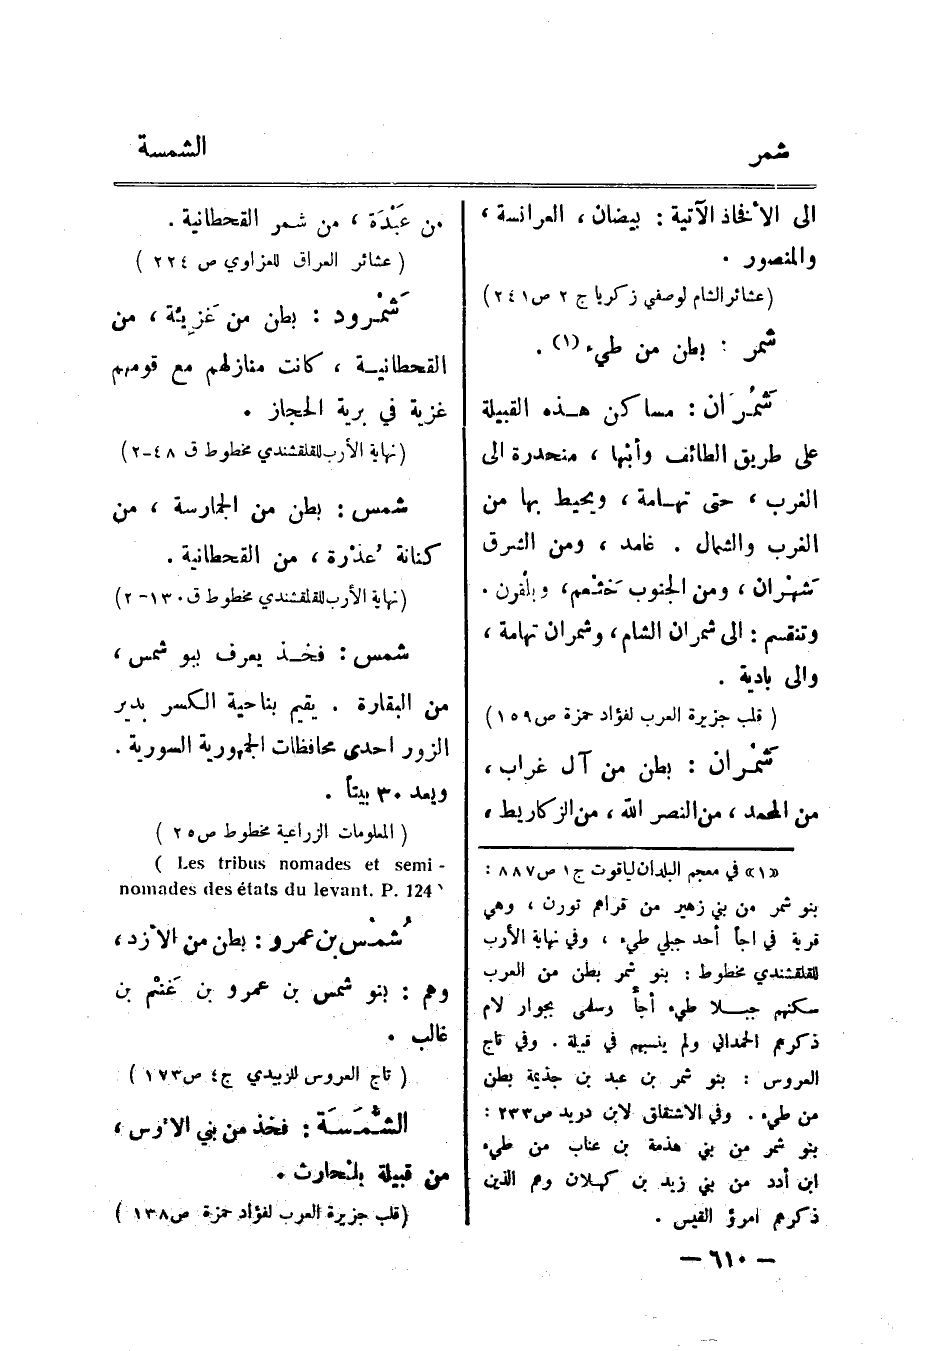 شمر
الشمسة
الى الأفخاذ الآتية : بيضان ، العرانسة ،
والمنصور .
(عشائر الشام لوصفي زكريا ج ٢ ص ٢٤١)
شمر : بطن من طيء (١) .
شَمْرَان : مساكن هـذه القبيلة
على طريق الطائف وأبها ، منحدرة الى
الغرب ، حتى تهـامة ، ويحيط بها من
الغرب والشمال . غامد ، ومن الشرق
شَهْرَان ، ومن الجنوب خَثْعم ، وبلْقرن .
وتنقسم : الى شمران الشام ، وشمران تهامة ،
والى بادية .
( قلب جزيرة العرب لفؤاد حمزة ص ١٥٩)
شَمْرَان : بطن من آل غراب ،
من المحمد ، من النصر الله ، من الزكاريط ،
«١» في معجم البلدان لياقوت ج ١ ص ٨٨٧ :
بنو شمر من بني زهير من قراهم تورن ، وهي
قرية في اجأ أحد جبلي طيء ، وفي نهاية الأرب
للقلقشندي مخطوط : بنو شمر بطن من العرب
سكنهم جبـلا طيء أجأ وسلمى بجوار لام
ذكرهم الحمداني ولم ينسبهم في قبيلة . وفي تاج
العروس : بنو شمر بن عبد بن جذيمة بطن
من طيء . وفي الاشتقاق لابن دريد ص ٢٣٣ :
بنو شمر من بني هذمة بن عناب من طيء
ابن أدد من بني زيد بن كهلان وهم الذين
ذكرهم امرؤ القيس .
من عَبْدَة ، من شمر القحطانية .
( عشائر العراق للعزاوي ص ٢٢٤ )
شَمْرود : بطن من غَزِيَّة ، من
القحطانيـة ، كانت منازلهم مع قومهم
غزية في برية الحجاز .
(نهاية الأرب للقلقشندي مخطوط ق ٤٨-٢)
شمس : بطن من الجمارسة ، من
كنانة عُذْرة ، من القحطانية .
(نهاية الأرب للقلقشندي مخطوط ق ١٣٠-٢)
شمس : فخـذ يعرف ببو شمس ،
من البقارة . يقيم بناحية الكسر بدير
الزور احدى محافظات الجمهورية السورية .
ويعد ٣٠ بيتاً .
( المعلومات الزراعية مخطوط ص ٢٥ )
( Les tribus nomades et semi -
nomades des états du levant. P. 124 )
شُمْس بن عمرو : بطن من الأزد ،
وهم : بنو شمس بن عمرو بن غَنْم بن
غالب .
( تاج العروس للزبيدي ج ٤ ص ١٧٣ )
الشَّمَسَة : فخذ من بني الاوس ،
من قبيلة بلْحارث .
(قلب جزيرة العرب لفؤاد حمزة ص ١٣٨ )
— ٦١٠ —